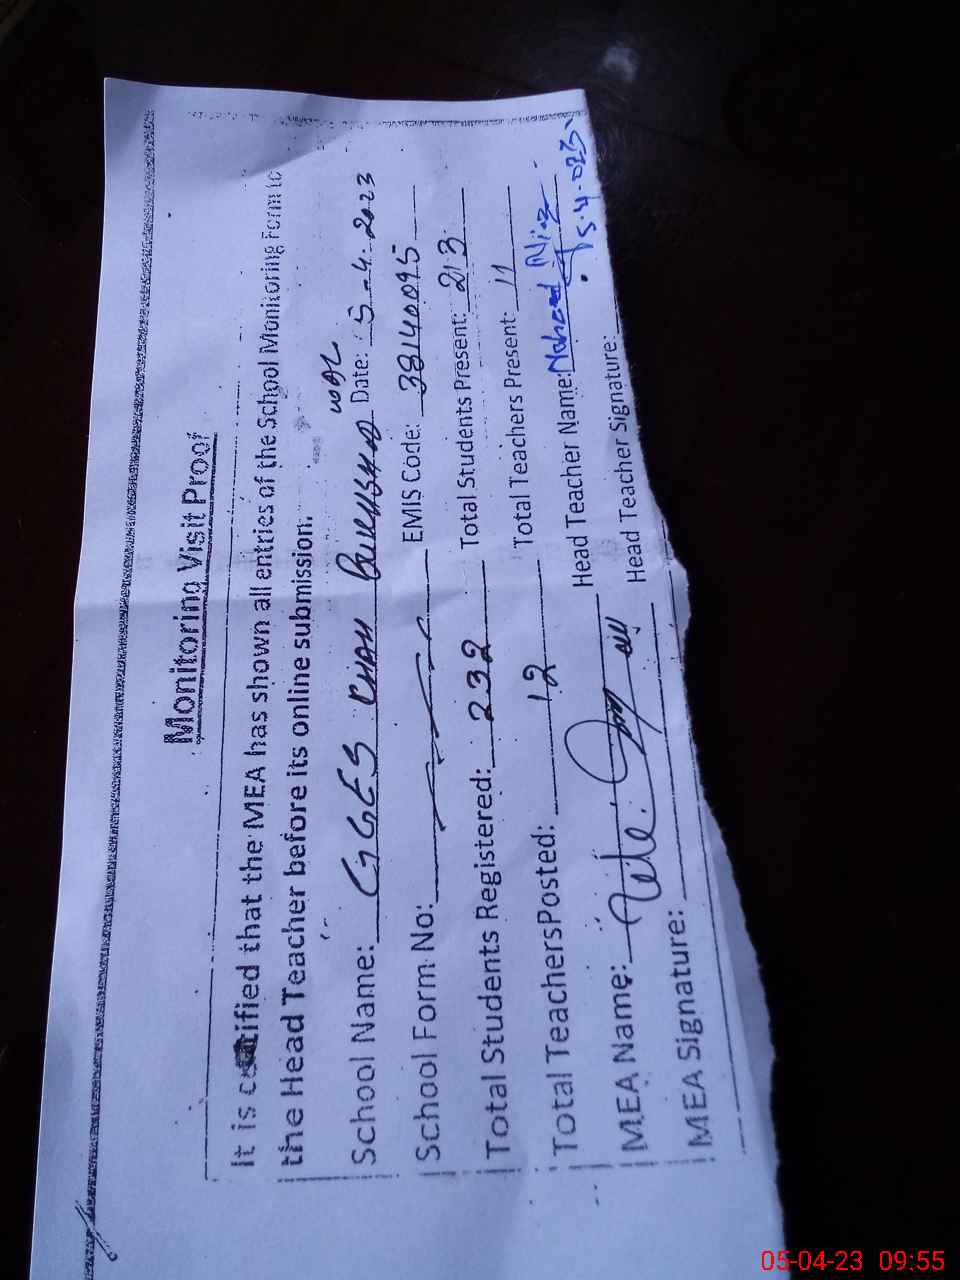 Monitoring Visit Proof
It is certified that the MEA has shown all entries of the School Monitoring Form to
the Head Teacher before its online submission.
School Name: GGES CHAH Date: 5-4-2023
School Form No: EMIS Code: 38140095
Total Students Registered: 232 Total Students Present: 213
Total TeachersPosted: 12 Total Teachers Present: 11
MEA Name: Head Teacher Name:
MEA Signature: Head Teacher Signature: 5.4.023
05-04-23 09:55